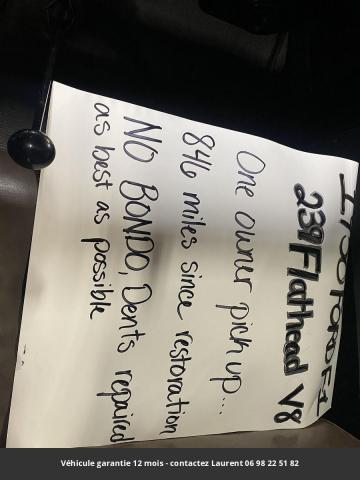 FORD F-1
239 Flathead V8
One owner pick up...
846 miles since restoration
NO BONDO, Dents repaired
as best as possible
Véhicule garantie 12 mois - contactez Laurent 06 98 22 51 82